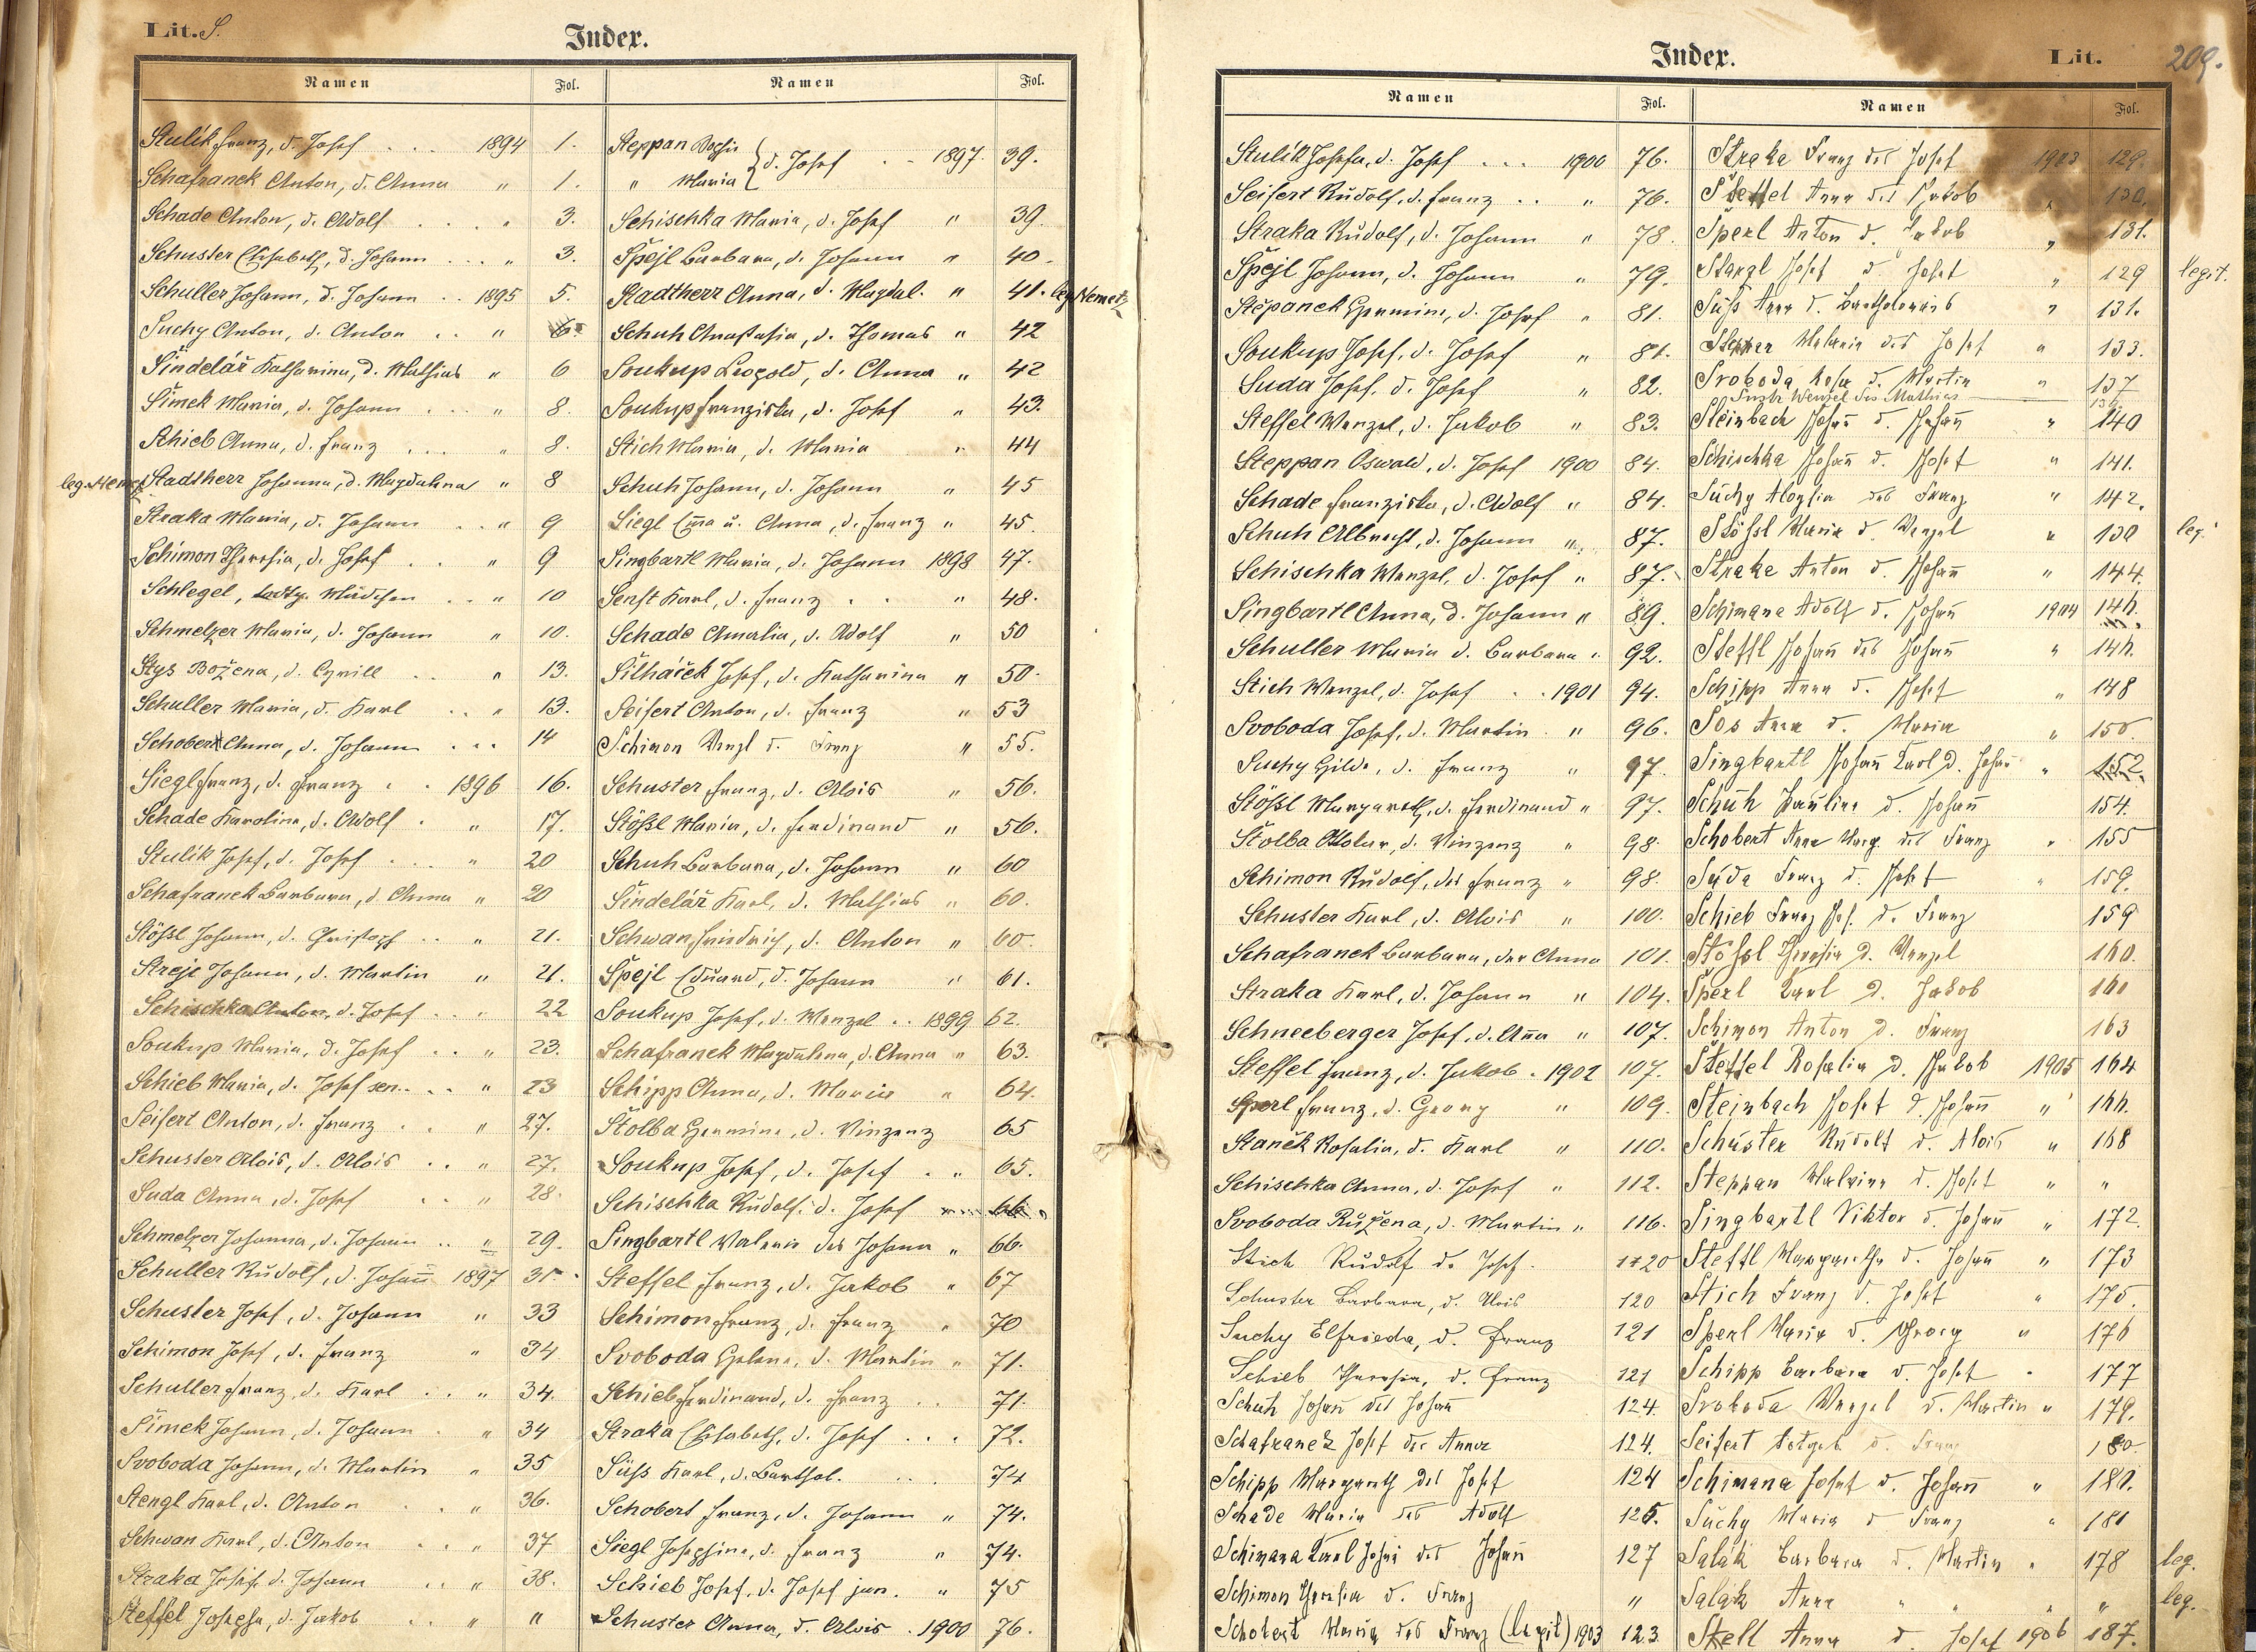 Lit. S.
Index.
Namen Fol.
Stulík Franz, d. Josef . . . 1894 1.
Schafranek Anton, d. Anna " 1.
Schade Anton, d. Adolf . . . " 3.
Schuster Elisabeth, d. Johann . . . " 3.
Schuller Johann, d. Johann . . 1895 5.
Suchy Anton, d. Anton . . " 6.
Šindelář Katharina, d. Mathias " 6
Šimek Maria, d. Johann . . . " 8.
Schieb Anna, d. Franz . . . " 8.
leg. Nemetz Stadtherr Johanna, d. Magdalena " 8
Straka Maria, d. Johann . . " 9
Schimon Theresia, d. Josef . . " 9
Schlegel, Mädchen . . " 10
Schmelzer Maria, d. Johann " 10.
Stys Božena, d. Cyrill . . " 13.
Schuller Maria, d. Karl . . " 13.
Schobert Anna, d. Johann . . . 14
Siegl Franz, d. Franz . . 1896 16.
Schade Karolina, d. Adolf . " 17.
Stulík Josef, d. Josef . . . " 20
Schafranek Barbara, d. Anna " 20
Stößl Johann, d. Christoph . . " 21.
Streje Johann, d. Martin " 21.
Schischka Anton, d. Josef . . " 22
Soukup Maria, d. Josef . . " 23.
Schieb Maria, d. Josef sen. . . " 23
Seifert Anton, d. Franz . . " 27.
Schuster Alois, d. Alois . . " 27.
Suda Anna, d. Josef . . " 28.
Schmelzer Johanna, d. Johann . . " 29.
Schuller Rudolf, d. Johann 1897 31.
Schuster Josef, d. Johann " 33
Schimon Josef, d. Franz " 34
Schuller Franz, d. Karl . . " 34.
Šimek Johann, d. Johann . " 34
Svoboda Johann, d. Martin " 35
Stengl Karl, d. Anton . . " 36.
Schwan Karl, d. Anton . . " 37
Straka Josef, d. Johann . . " 38.
Steffel Josefa, d. Jakob . . " "
Namen Fol.
Steppan Sophie
" Maria } d. Josef . . 1897. 39.
Schischka Maria, d. Josef " 39.
Špejl Barbara, d. Johann " 40.
Stadtherr Anna, d. Magdal. " 41. leg. Nemetz
Schuh Anastasia, d. Thomas " 42
Soukup Leopold, d. Anna " 42
Soukup Franziska, d. Josef " 43.
Stich Maria, d. Maria " 44
Schuh Johann, d. Johann " 45
Siegl Ema u. Anna, d. Franz " 45.
Singbartl Maria, d. Johann 1898 47.
Senft Karl, d. Franz . . " 48.
Schade Amalia, d. Adolf " 50
Šilháček Josef, d. Katharina " 50.
Seifert Anton, d. Franz " 53
Schimon Wenzl d. Franz " 55.
Schuster Franz, d. Alois " 56.
Stößl Maria, d. Ferdinand " 56.
Schuh Barbara, d. Johann " 60
Šindelář Karl, d. Mathias " 60.
Schwan Friedrich, d. Anton " 60.
Špejl Eduard, d. Johann " 61.
Soukup Josef, d. Wenzel . . 1899 62.
Schafranek Magdalena, d. Anna " 63.
Schipp Anna, d. Maria " 64.
Štolba Hermine, d. Vinzenz 65
Soukup Josef, d. Josef . " 65.
Schischka Rudolf. d. Josef 66.
Singbartl Valerie des Johann " 66.
Steffel Franz, d. Jakob " 67
Schimon Franz, d. Franz " 70
Svoboda Helena, d. Martin " 71.
Schieb Ferdinand, d. Franz . . 71.
Straka Elisabeth, d. Josef . . . 72.
Süß Karl, d. Barthol. . . . 74
Schobert Franz, d. Johann " 74.
Siegl Josephine, d. Franz " 74.
Schieb Josef, d. Josef jun. " 75
Schuster Anna, d. Alois . 1900 76.
Index.
Lit. 209.
Namen Fol.
Stulík Josefa, d. Josef . . . 1900 76.
Seifert Rudolf, d. Franz . . " 76.
Straka Rudolf, d. Johann " 78.
Špejl Johann, d. Johann " 79.
Štěpanek Hermine, d. Josef " 81.
Soukup Josef, d. Josef " 81.
Suda Josef, d. Josef " 82.
Steffel Wenzel, d. Jakob " 83.
Steppan Oswald, d. Josef 1900 84.
Schade Franziska, d. Adolf " 84.
Schuh Albrecht, d. Johann " 87.
Schischka Wenzel, d. Josef " 87.
Singbartl Anna, d. Johann " 89.
Schuller Maria d. Barbara " 92.
Stich Wenzel, d. Josef . . 1901 94.
Svoboda Josef, d. Martin . " 96.
Suchy Hilda, d. Franz " 97.
Stößl Margareth, d. Ferdinand " 97.
Štolba d. Vinzenz " 98.
Schimon Rudolf, des Franz " 98.
Schuster Karl, d. Alois " 100.
Schafranek Barbara, der Anna 101.
Straka Karl, d. Johann " 104.
Schneeberger Josef, d. Anna " 107.
Steffel Franz, d. Jakob . 1902 107.
Sperl Franz, d. Georg " 109.
Staněk Rosalia, d. Karl " 110.
Schischka Anna, d. Josef " 112.
Svoboda Růžena, d. Martin " 116.
Stich Rudolf d. Josef. 120
Schuster Barbara, d. Alois 120
Suchy Elfrieda, d. Franz 121
Schieb Theresia, d. Franz 121
Schuh Johann des Johann 124.
Schafranek Josef der Anna 124.
Schipp Margareth des Josef 124
Schade Maria des Adolf 125.
Schimana Karl Johann des Johann 127
Schimon Theresia d. Franz "
Schobert Maria des Franz (legit) 1903 123
Namen Fol.
Straka Franz des Josef 1903 129.
Steffel Anna des Jakob " 130.
Sperl Anton d. Jakob " 131.
Stangl Josef d. Josef " 129 legit.
Süß Anna d. Bartholomäus " 131.
Stepper Melanie des Josef " 133.
Svoboda Rosa d. Martin " 137
Wenzel des Mathias
Steinbach Johann d. Johann " 140
Schischka Johann d. Josef " 141.
Suchy Aloysia des Franz " 142.
Stößl Maria d. Wenzel " 130 leg.
Straka Anton d. Johann " 144.
Schimana Adolf d. Johann 1904 146.
Steffl Johann des Johann " 146.
Schipp Anna d. Josef " 148
Sos Anna d. Maria " 150.
Singbartl Johann Karl d. Johann " 152.
Schuh Pauline d. Johann 154.
Schobert Anna Marg. des Franz " 155
Suda Franz d. Josef " 159.
Schieb Franz Jos. d. Franz 159
Stößl Theresia d. Wenzel 160.
Sperl Karl d. Jakob 160
Schimon Anton d. Franz 163
Steffel Rosalia d. Jakob 1905 164
Steinbach Josef d. Johann " 166.
Schuster Rudolf d. Alois " 168
Steppan Malvine d. Josef " "
Singbartl Viktor d. Johann " 172.
Steffl Margaretha d. Johann " 173
Stich Franz d. Josef " 175.
Sperl Maria d. Georg " 176
Schipp Barbara d. Josef " 177
Svoboda Wenzel d. Martin " 179.
Seifert d. Franz 180.
Schimana Josef d. Johann " 180.
Suchy Maria d Franz " 181
Salák Barbara d. Martin " 178 leg.
Salák Anna " " " " leg.
Skell Anna d. Josef 1906 187.